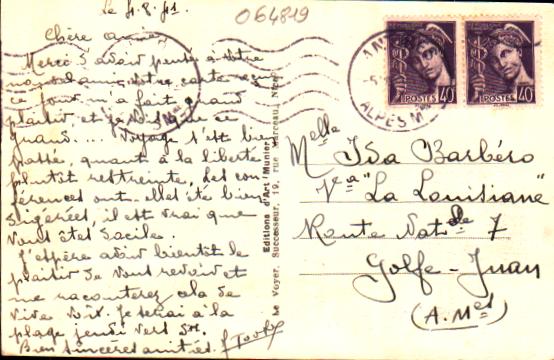 Le 4.8.41
064819
Chère amie,
Merci d'avoir pensé à votre
votre carte
ce jour m'a fait grand
plaisir, et je vois que ce
grand.... voyage s'est bien
passé, quant à la liberté
plutôt restreinte, les con
férences ont-elles été bien
digérées, il est vrai que
vous êtes
J'espère avoir bientôt le
plaisir de vous revoir et
me raconterez cela de
vive voix. Je serai à la
plage jeudi vers 5h.
Bien sincères amitiés.
Editions d'Art "Munier"
Le Voyer, Successeur, 19, rue Marceau, Nice
ANT
ALPES Mmes
POSTES 40c
POSTES 40c
Melle Ida Barbéro
Va "La Louisiane"
Route Natle 7
Golfe-Juan
(A.Mes)